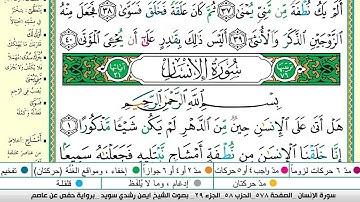 أَلَمْ يَكُ نُطْفَةً مِّن مَّنِيٍّ يُمْنَىٰ ٣٧ ثُمَّ كَانَ عَلَقَةً فَخَلَقَ فَسَوَّىٰ ٣٨ فَجَعَلَ مِنْهُ
الزَّوْجَيْنِ الذَّكَرَ وَالْأُنثَىٰ ٣٩ أَلَيْسَ ذَٰلِكَ بِقَادِرٍ عَلَىٰ أَن يُحْيِيَ الْمَوْتَىٰ ٤٠
سُورَةُ الْإِنسَانِ
بِسْمِ اللَّهِ الرَّحْمَٰنِ الرَّحِيمِ
هَلْ أَتَىٰ عَلَى الْإِنسَانِ حِينٌ مِّنَ الدَّهْرِ لَمْ يَكُن شَيْئًا مَّذْكُورًا ١
إِنَّا خَلَقْنَا الْإِنسَانَ مِن نُّطْفَةٍ أَمْشَاجٍ نَّبْتَلِيهِ فَجَعَلْنَاهُ سَمِيعًا
مدّ ٦ حركات لزوماً مدّ واجب ٤ أو ٥ حركات مدّ ٢ أو ٤ أو ٦ جوازاً إخفاء ، ومواقع الغُنَّة (حركتان) تفخيم
مدّ حركتان إدغام ، وما لا يُلفَظ قلقلة
سورة الإنسان _ الصفحة ٥٧٨ _ الحزب ٥٨ _ الجزء ٢٩ _ بصوت الشيخ ايمن رشدي سويد _ برواية حفص عن عاصم